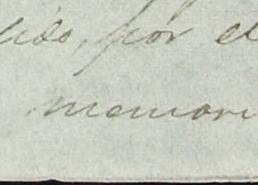 ido, por el
memori